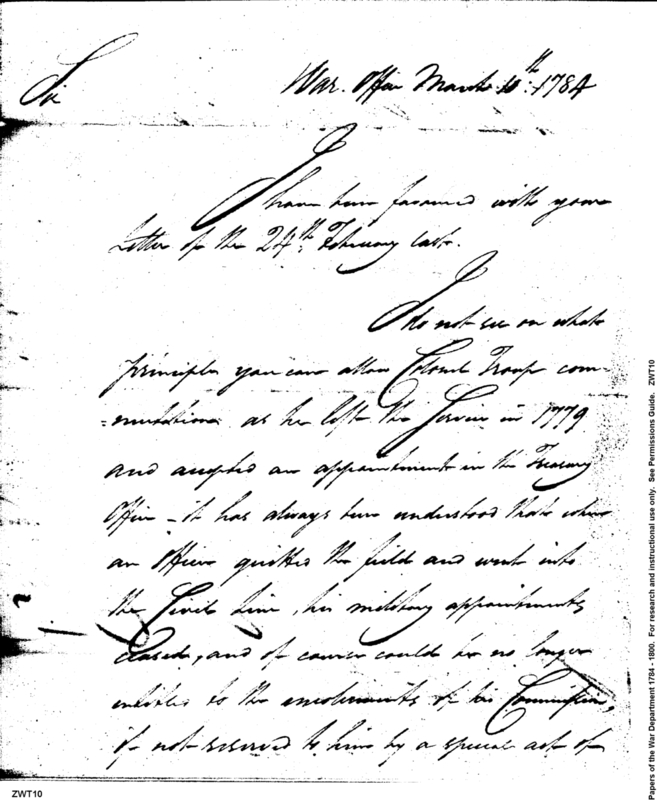 Sir
War. Office March 10th. 1784
I
have been favoured with your
Letter of the 24th. February last.
I
do not see on what
principles you can allow Colonel Troup com=
=mutation as he left the Service in 1779
and accepted an appointment in the Treasury
Office - it has always been understood that when
an Officer quitted the field and went into
the Civil line, his military appointments
ceased, and of course could be no longer
entitled to the emoluments of his Commission,
if not reserved to him by a special act of
ZWT10
Papers of the War Department 1784 - 1800. For research and instructional use only. See Permissions Guide. ZWT10